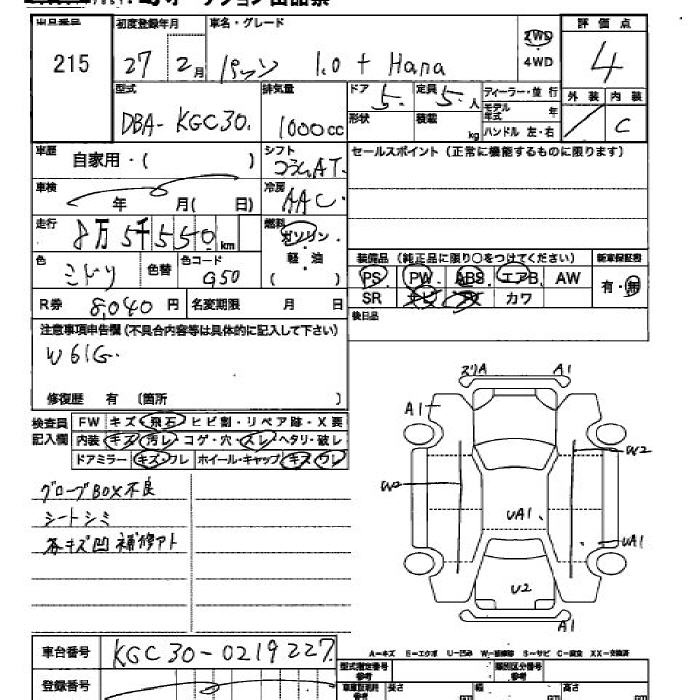 出品番号 初度登録年月 車名・グレード 2WD 4WD 評価点
215 27 2月 パッソ 1.0 + Hana 4
型式 排気量 ドア 5. 定員 5. 人 ディーラー・並行 外装 内装
DBA- KGC30. 1000cc 形状 積載 kg モデル年式 年 ハンドル 左・右 / C
車歴 自家用・( ) シフト コラムAT. セールスポイント(正常に機能するものに限ります)
車検 年 月( 日) 冷房 AAC.
走行 8万5千550km 燃料 ガソリン・
色 ミドリ 色替 色コード G50 軽・油 ( ) 装備品(純正品に限り○をつけてください) 新車保証書
PS PW ABS エアB AW 有・無
R券 8,040 円 名変期限 月 日 SR ナビ TV カワ
注意事項申告欄(不具合内容等は具体的に記入して下さい) 後日品
W61G.
修復歴 有 (箇所 )
ズリA A1
検査員 FW キズ・飛石・ヒビ割・リペア跡・X要 A1
記入欄 内装 キズ・汚レ・コゲ・穴・スレ・ヘタリ・破レ
ドアミラー キズ・ワレ ホイール・キャップ キズ・ワレ W2
グローブBOX不良 W2
シートシミ UA1. UA1
各キズ凹 補修アト
U2
A1
車台番号 KGC30-0219227. A-キズ E-エクボ U-凹み W-補修跡 S-サビ C-腐食 XX-交換済
型式指定番号 参考 類別区分番号 参考
登録番号 長さ cm 幅 cm 高さ cm